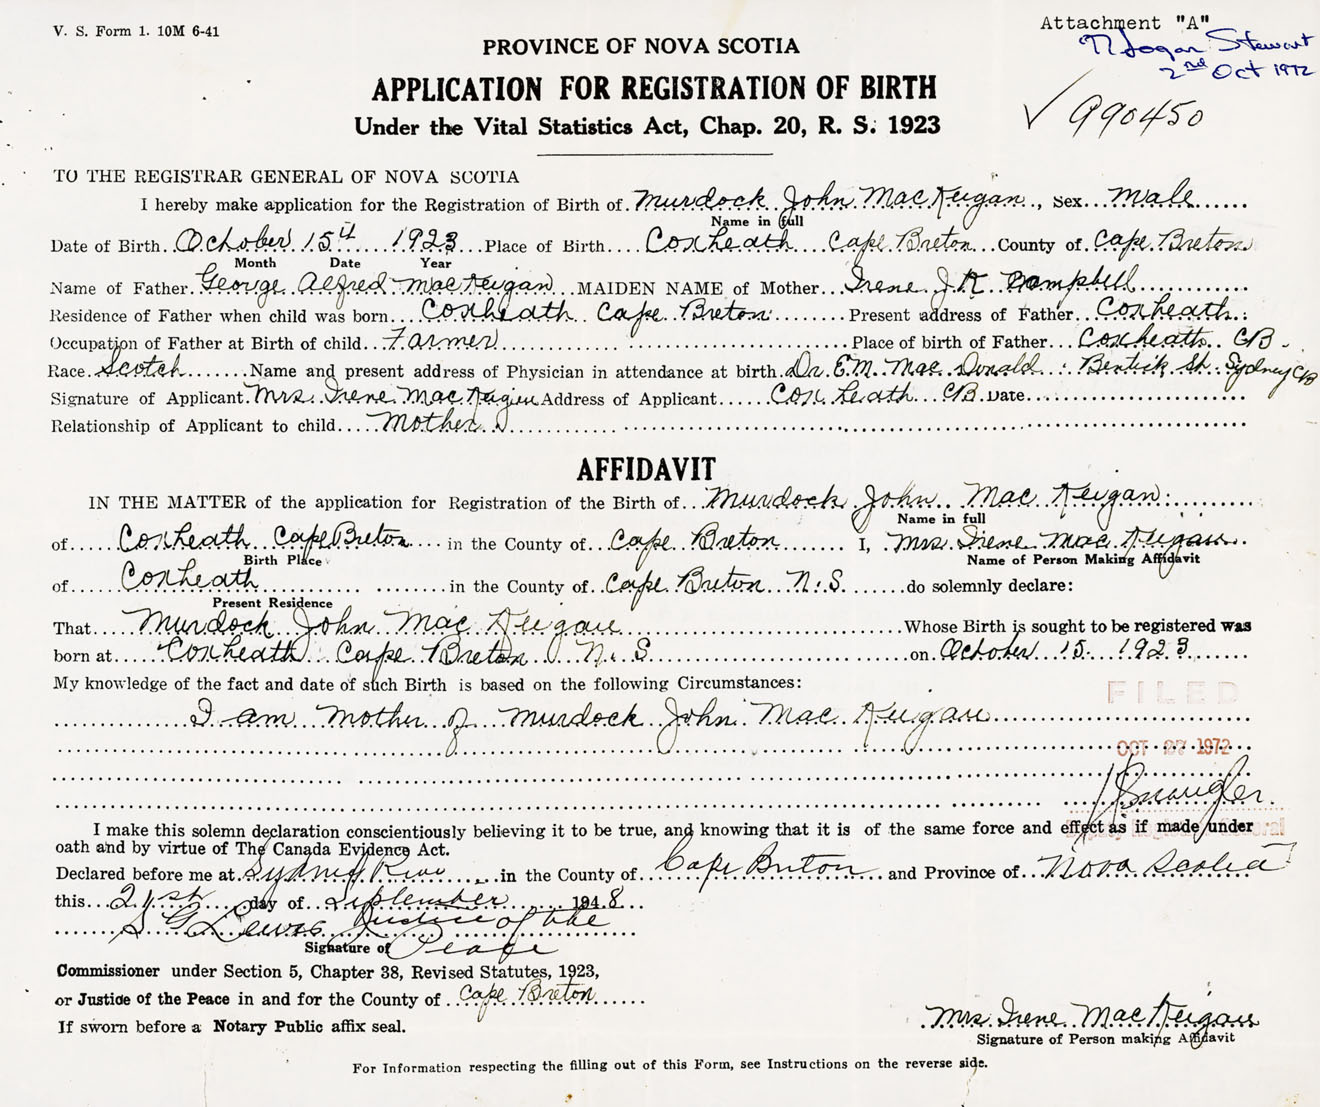 V. S. Form 1. 10M 6-41
Attachment "A"
Logan Stewart
2nd Oct 1972
PROVINCE OF NOVA SCOTIA
APPLICATION FOR REGISTRATION OF BIRTH
Under the Vital Statistics Act, Chap. 20, R. S. 1923
✓ 990450
TO THE REGISTRAR GENERAL OF NOVA SCOTIA
I hereby make application for the Registration of Birth of Murdock John MacKeigan, Sex Male
Name in full
Date of Birth October 15th 1923 Place of Birth Coxheath Cape Breton County of Cape Breton
Month Date Year
Name of Father George Alfred MacKeigan MAIDEN NAME of Mother Irene J.K Campbell
Residence of Father when child was born Coxheath Cape Breton Present address of Father Coxheath
Occupation of Father at Birth of child Farmer Place of birth of Father Coxheath CB.
Race Scotch Name and present address of Physician in attendance at birth Dr. E.M. MacDonald Bentick St. Sydney CB
Signature of Applicant Mrs. Irene MacKeigan Address of Applicant Coxheath CB. Date
Relationship of Applicant to child Mother
AFFIDAVIT
IN THE MATTER of the application for Registration of the Birth of Murdock John MacKeigan
Name in full
of Coxheath Cape Breton in the County of Cape Breton I, Mrs. Irene MacKeigan
Birth Place Name of Person Making Affidavit
of Coxheath in the County of Cape Breton N.S. do solemnly declare:
Present Residence
That Murdock John MacKeigan Whose Birth is sought to be registered was
born at Coxheath Cape Breton N.S on October 15 1923
My knowledge of the fact and date of such Birth is based on the following Circumstances:
I am Mother of Murdock John MacKeigan
FILED
OCT 27 1972
I make this solemn declaration conscientiously believing it to be true, and knowing that it is of the same force and effect as if made under
oath and by virtue of The Canada Evidence Act.
Declared before me at Sydney River in the County of Cape Breton and Province of Nova Scotia
this 21st day of September 1948
S G Lewis Justice of the
Signature of Peace
Commissioner under Section 5, Chapter 38, Revised Statutes, 1923,
or Justice of the Peace in and for the County of Cape Breton
If sworn before a Notary Public affix seal.
Mrs. Irene MacKeigan
Signature of Person making Affidavit
For Information respecting the filling out of this Form, see Instructions on the reverse side.